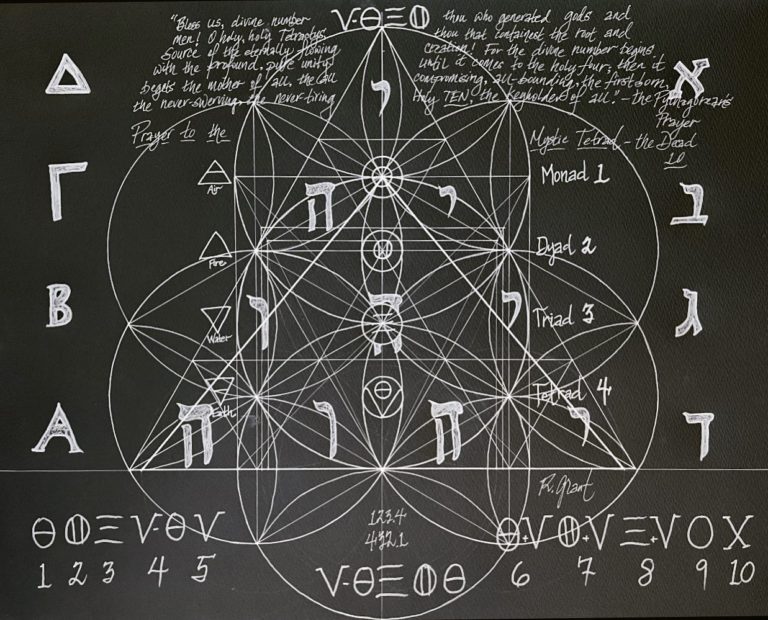 "Bless us, divine number
men! O holy, holy Tetractys
Source of the eternally flowing
with the profound, pure unity
begets the mother of all, the all
the never-swerving, the never-tiring
V-ΘΞⵀ
thou who generated gods and
thou that containest the root and
creation! For the divine number begins
until it comes to the holy four, then it
compromising, all-bounding, the first born,
Holy TEN, the keyholder of all. - the Pythagorean's
Prayer
Prayer to the
Mystic Tetrad - the Decad
10
Δ
Γ
B
A
א
ב
ג
ד
Air
Fire
Water
Earth
Monad 1
Dyad 2
Triad 3
Tetrad 4
י
ה י
ו ה י
ה ו ה י
R. Grant
1234
4321
1 2 3 4 5
6 7 8 9 10